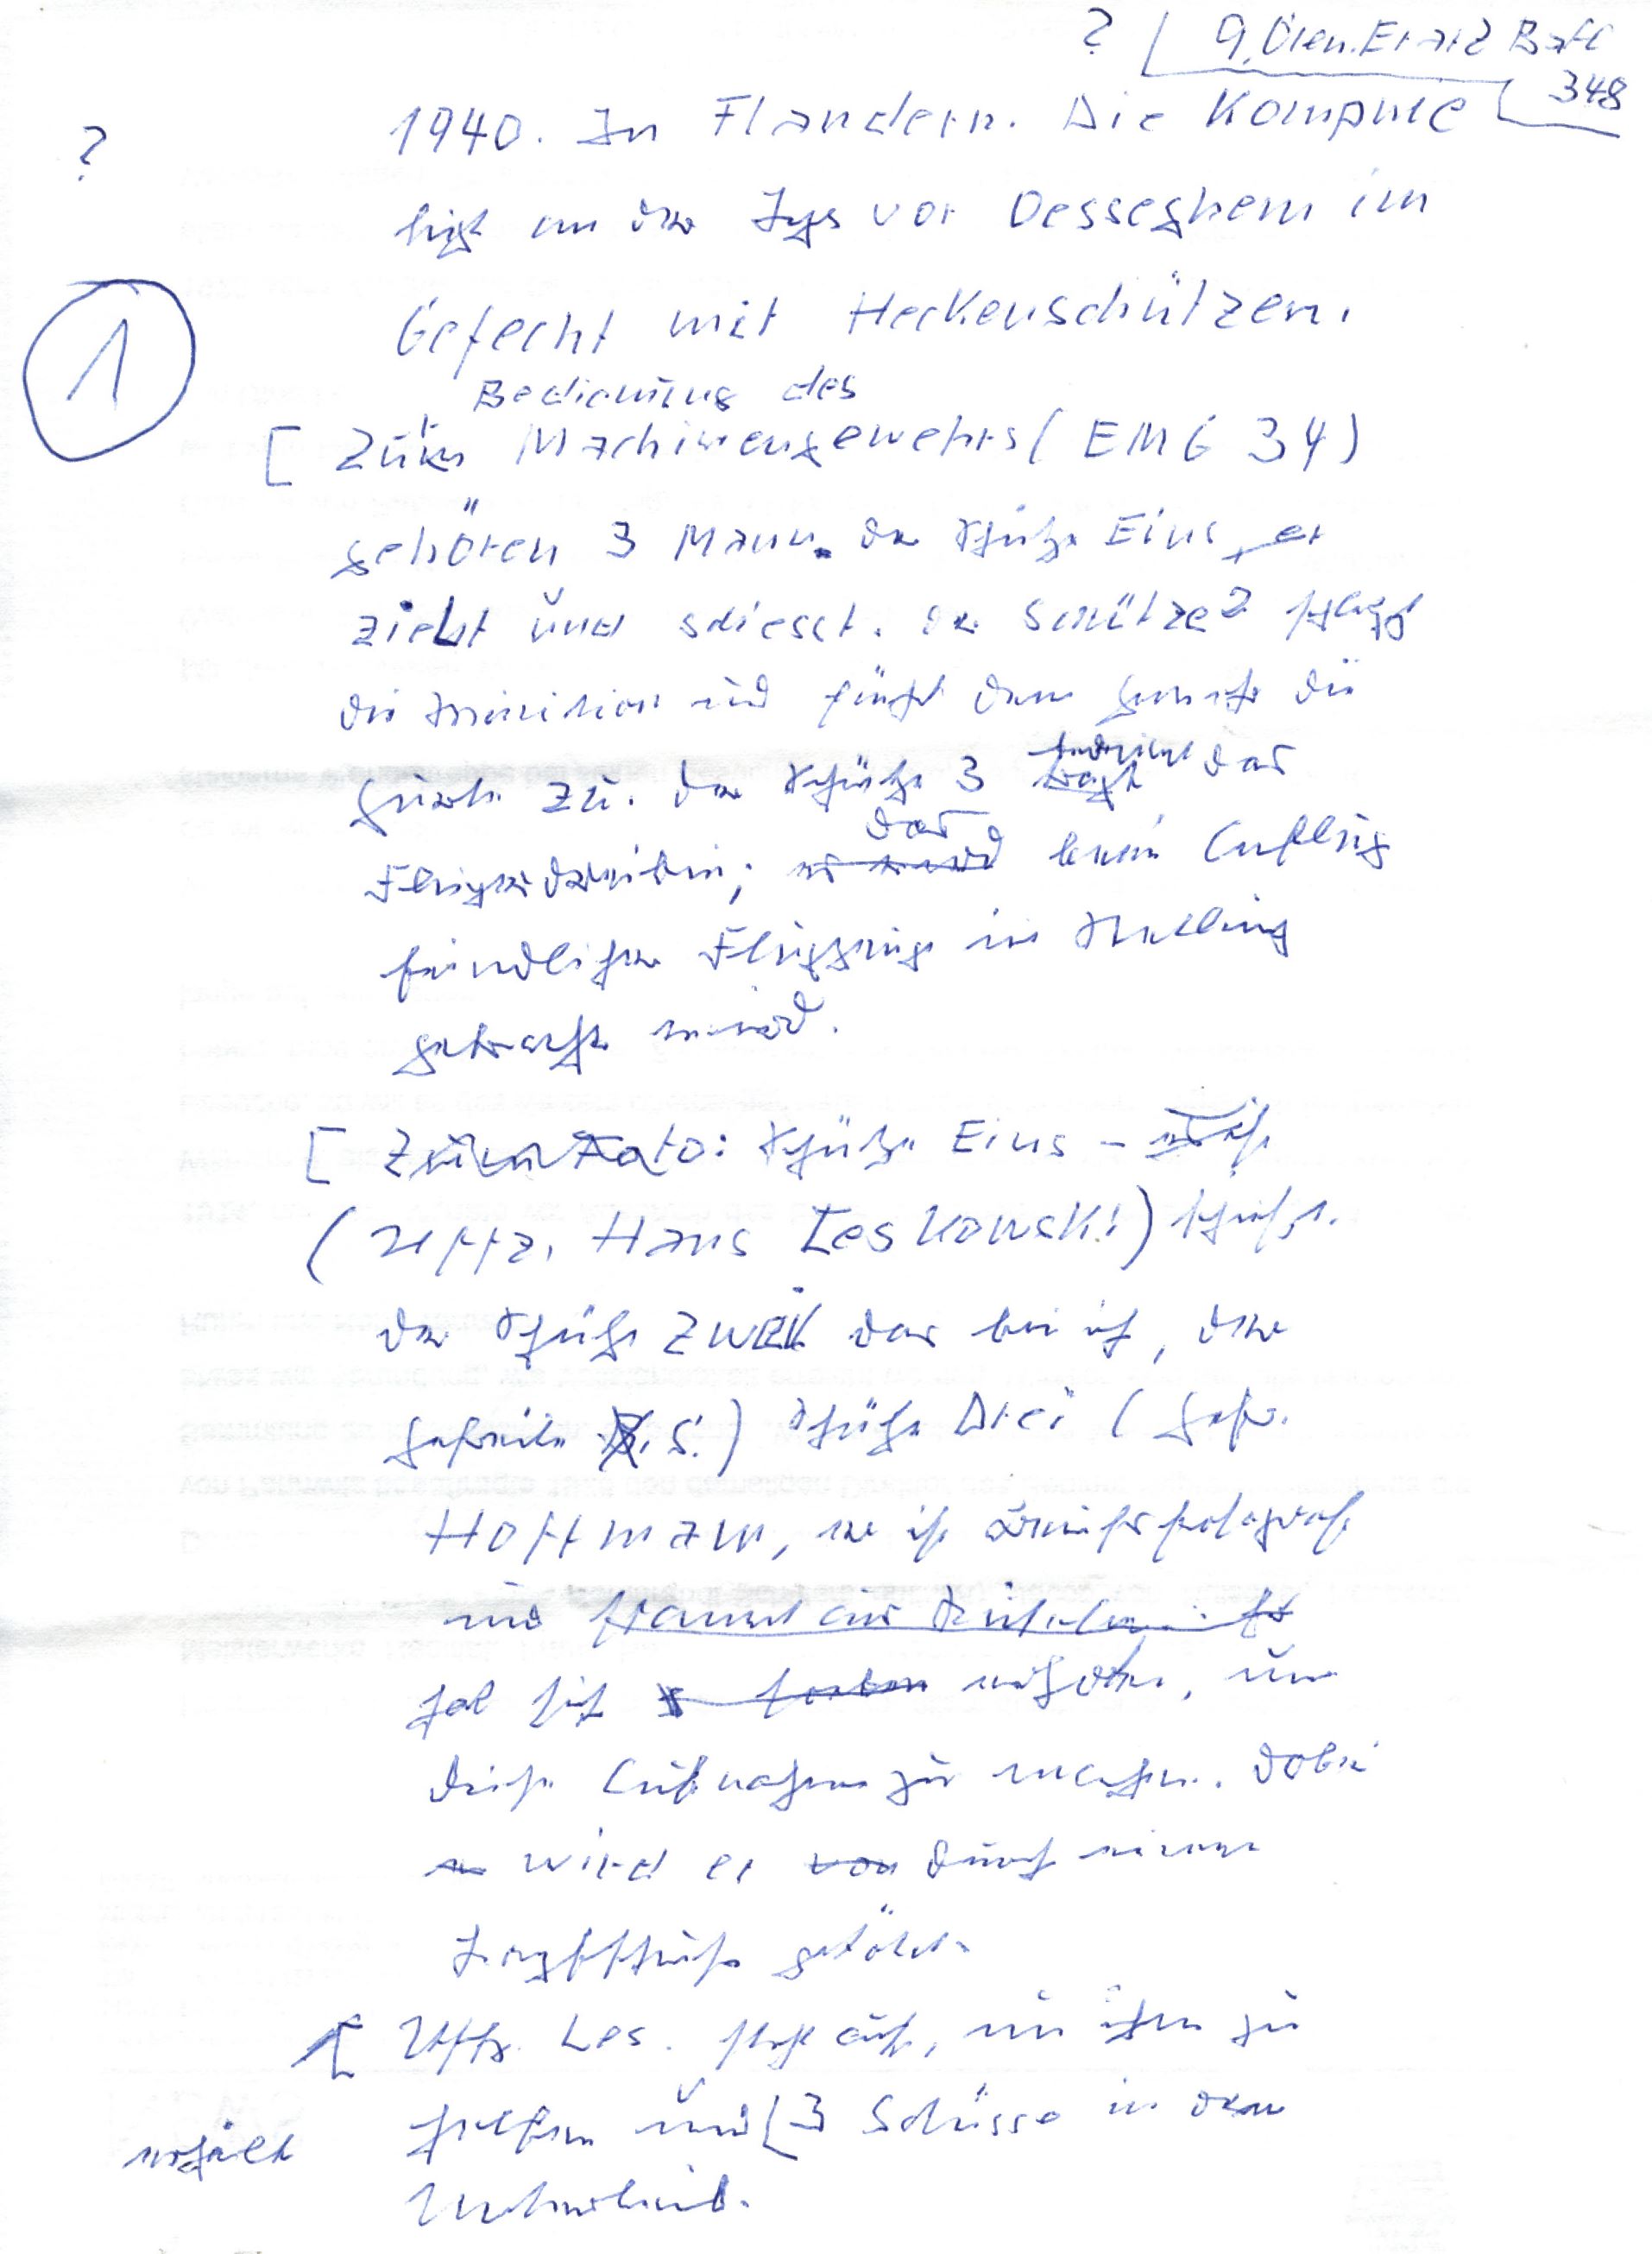 ? 9. Gren. Ersatz Batl
348
? 1940. In Flandern. Die Kompnie
liegt an der Lys vor Desseghem im
1
Gefecht mit Heckenschützen.
Bedienung des
[ Zur Machinengewehrs (EMG 34)
gehören 3 Mann. Der Schütze Eins, er
zielt und schiesst. Der Schütze 2 schleppt
die Munition und führt dem Gewehr die
Gurte zu. Der Schütze 3 bedient das
das
Fliegerdreibein; er wird beim Anflug
feindlicher Flugzeuge in Stellung
gebracht wird.
[ Zum Foto: Schütze Eins –
(Uffz. Hans Leskowski) schiesst.
Der Schütze Zwei das bin ich, der
Gefreite G.) Schütze Drei (Gefr.
Hoffmann, er ist Berufsfotograf
und stammt aus
hat sich erhoben, um
diese Aufnahme zu machen. Dabei
wird er von durch einen
Kopfschuss getötet.
[ Uffz. Les. steht auf, um ihm zu
helfen und [ 3 Schüsse in den
erhält
Unterleib.